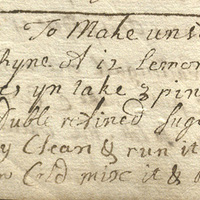 To Make
hyne of 12 Lemon
yn take 3 pin
duble refined suga
y Clean & run it
Cold mix it &